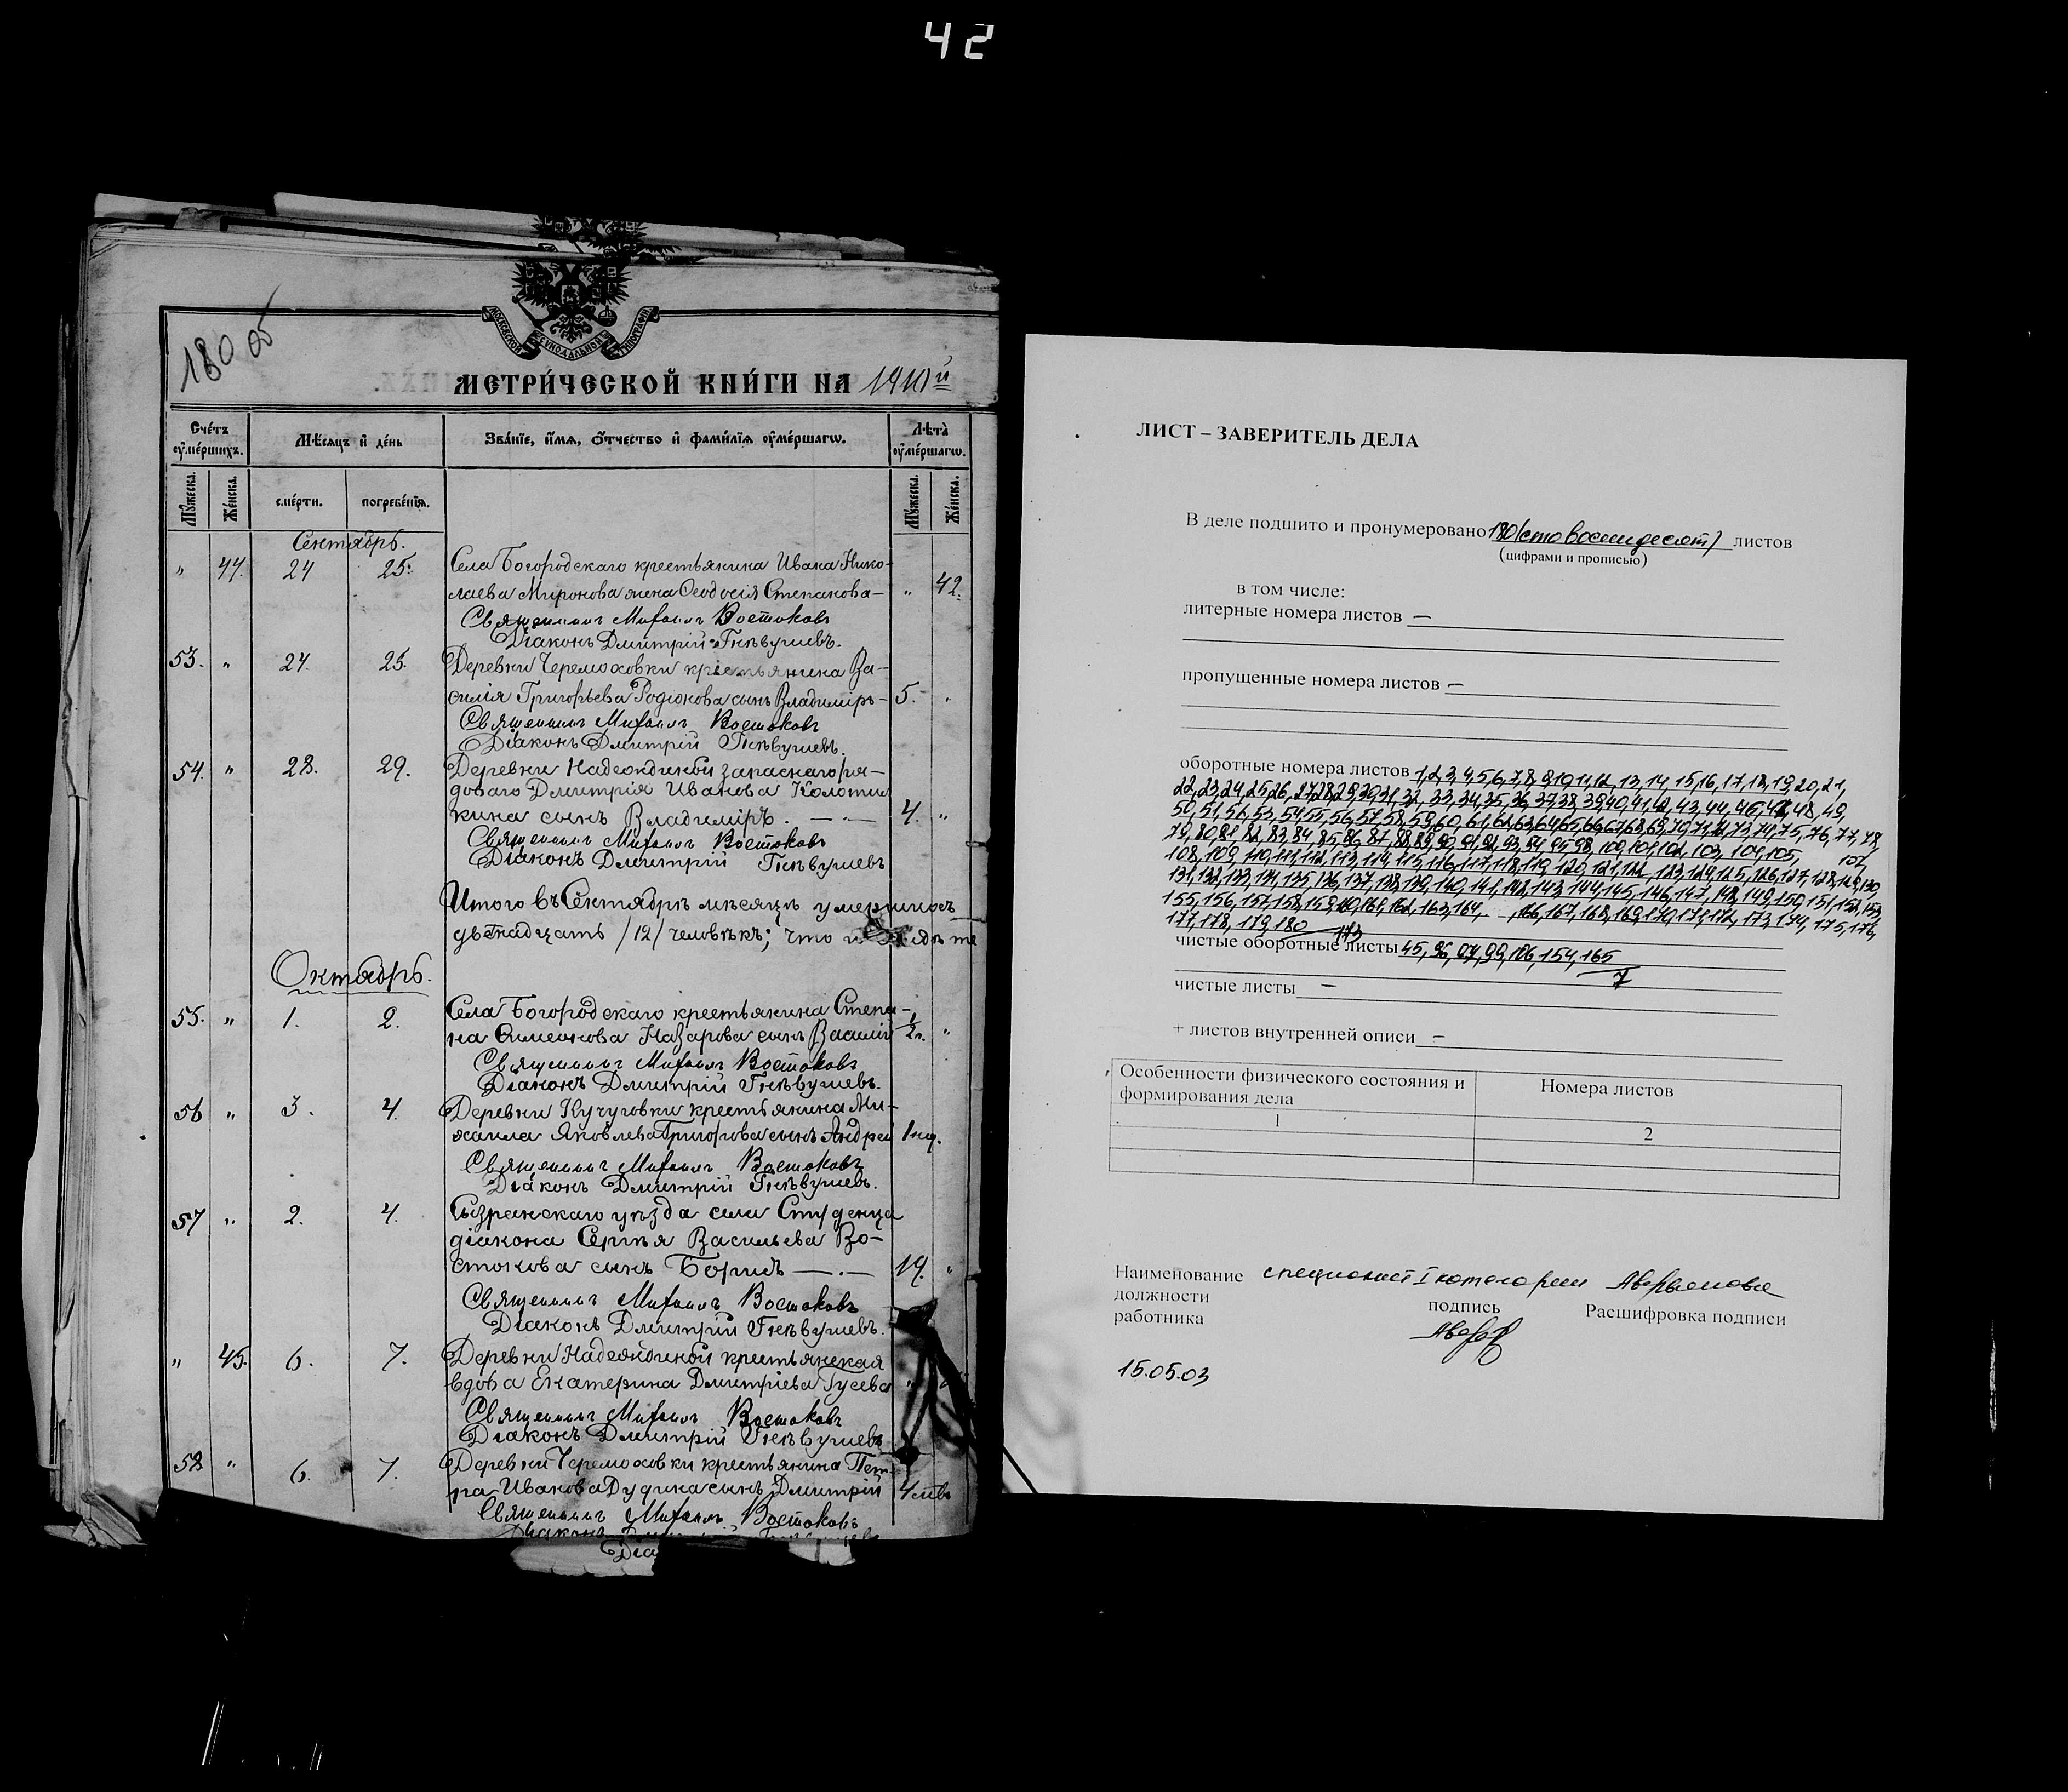 42
180 об
МОСКОВСКОЙ СѴНОДАЛЬНОЙ ТИПОГРАФІИ
МЕТРИ́ЧЕСКОЙ КНИ́ГИ НА 1911й
Сче́тъ ѹ҆ме́ршихъ.
Мѣ́сяцъ и҆ де́нь
Зва́нїе, и҆́мѧ, ѻ҆́тчество и҆ фами́лїѧ ѹ҆ме́ршагѡ.
Лѣта̀ ѹ҆ме́ршагѡ.
Мꙋ́жеска.
Же́нска.
сме́рти.
погребе́нїѧ.
Мꙋ́жеска.
Же́нска.
Сентябрь.
" 44. 24 25. Села Богородскаго крестьянина Ивана Нико-
лаева Миронова жена Ѳеодосія Степанова — " 42.
Священникъ Михаилъ Востоковъ
Діаконъ Дмитрій Гнѣвушевъ.
53. " 24. 25. Деревни Черемоховки крестьянина Ва-
силія Григорьева Родіонова сынъ Владиміръ - 5. "
Священникъ Михаилъ Востоковъ
Діаконъ Дмитрій Гнѣвушевъ.
54. " 28. 29. Деревни Надеждиной запаснаго ря-
доваго Дмитрія Иванова Колотил
кина сынъ Владиміръ. — 4. "
Священникъ Михаилъ Востоковъ
Діаконъ Дмитрій Гнѣвушевъ
Итого въ Сентябрѣ мѣсяцѣ умершихъ
двѣнадцать /12/ человѣкъ; что и
Октябрь.
55. " 1. 2. Села Богородскаго крестьянина Степа-
на Симеонова Назарова сынъ Василій 1/2 г. "
Священникъ Михаилъ Востоковъ
Діаконъ Дмитрій Гнѣвушевъ.
56 " 3. 4. Деревни Кучуговки крестьянина Ми-
хаила Яковлева Григорова сынъ Андрей 1 нед.
Священникъ Михаилъ Востоковъ
Діаконъ Дмитрій Гнѣвушевъ.
57 " 2. 4. Сызранскаго уѣзда села Студенца
діакона Сергѣя Васильева Во-
стокова сынъ Борисъ — 19. "
Священникъ Михаилъ Востоковъ
Діаконъ Дмитрій Гнѣвушевъ.
" 45. 6. 7. Деревни Надеждиной крестьянская
вдова Екатерина Дмитріева Гусева
Священникъ Михаилъ Востоковъ
Діаконъ Дмитрій Гнѣвушевъ
58 " 6. 7. Деревни Черемоховки крестьянина Пет-
ра Иванова Дудина сынъ Дмитрій
Священникъ Михаилъ Востоковъ
Діаконъ
Діа
ЛИСТ – ЗАВЕРИТЕЛЬ ДЕЛА
В деле подшито и пронумеровано 180 (сто восемьдесят) листов
(цифрами и прописью)
в том числе:
литерные номера листов —
пропущенные номера листов —
оборотные номера листов 1,2,3,4,5,6,7,8,9,10,11,12,13,14,15,16,17,18,19,20,21,
22,23,24,25,26,27,28,29,30,31,32,33,34,35,36,37,38,39,40,41,42,43,44,46,47,48,49,
50,51,52,53,54,55,56,57,58,59,60,61,62,63,64,65,66,67,68,69,70,71,72,73,74,75,76,77,78,
79,80,81,82,83,84,85,86,87,88,89,90,91,92,93,94,95,98,100,101,102,103,104,105, 107,
108,109,110,111,112,113,114,115,116,117,118,119,120,121,122,123,124,125,126,127,128,129,130,
131,132,133,134,135,136,137,138,139,140,141,142,143,144,145,146,147,148,149,150,151,152,153,
155,156,157,158,159,160,161,162,163,164, 166,167,168,169,170,171,172,173,174,175,176,
177,178,179,180
173
чистые оборотные листы 45,96,97,99,106,154,165
7
чистые листы —
+ листов внутренней описи —
Особенности физического состояния и формирования дела
Номера листов
1
2
Наименование должности работника
специалист I категории Аверьянова
подпись
Расшифровка подписи
15.05.03